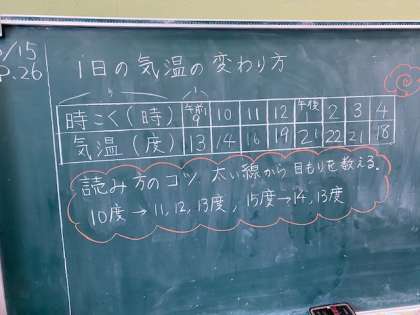 5/15
P.26
1日の気温の変わり方
時こく(時) 午前9 10 11 12 午後1 2 3 4
気温(度) 13 14 16 19 21 22 21 18
読み方のコツ 太い線から目もりを数える。
10度→11,12,13度, 15度→14,13度